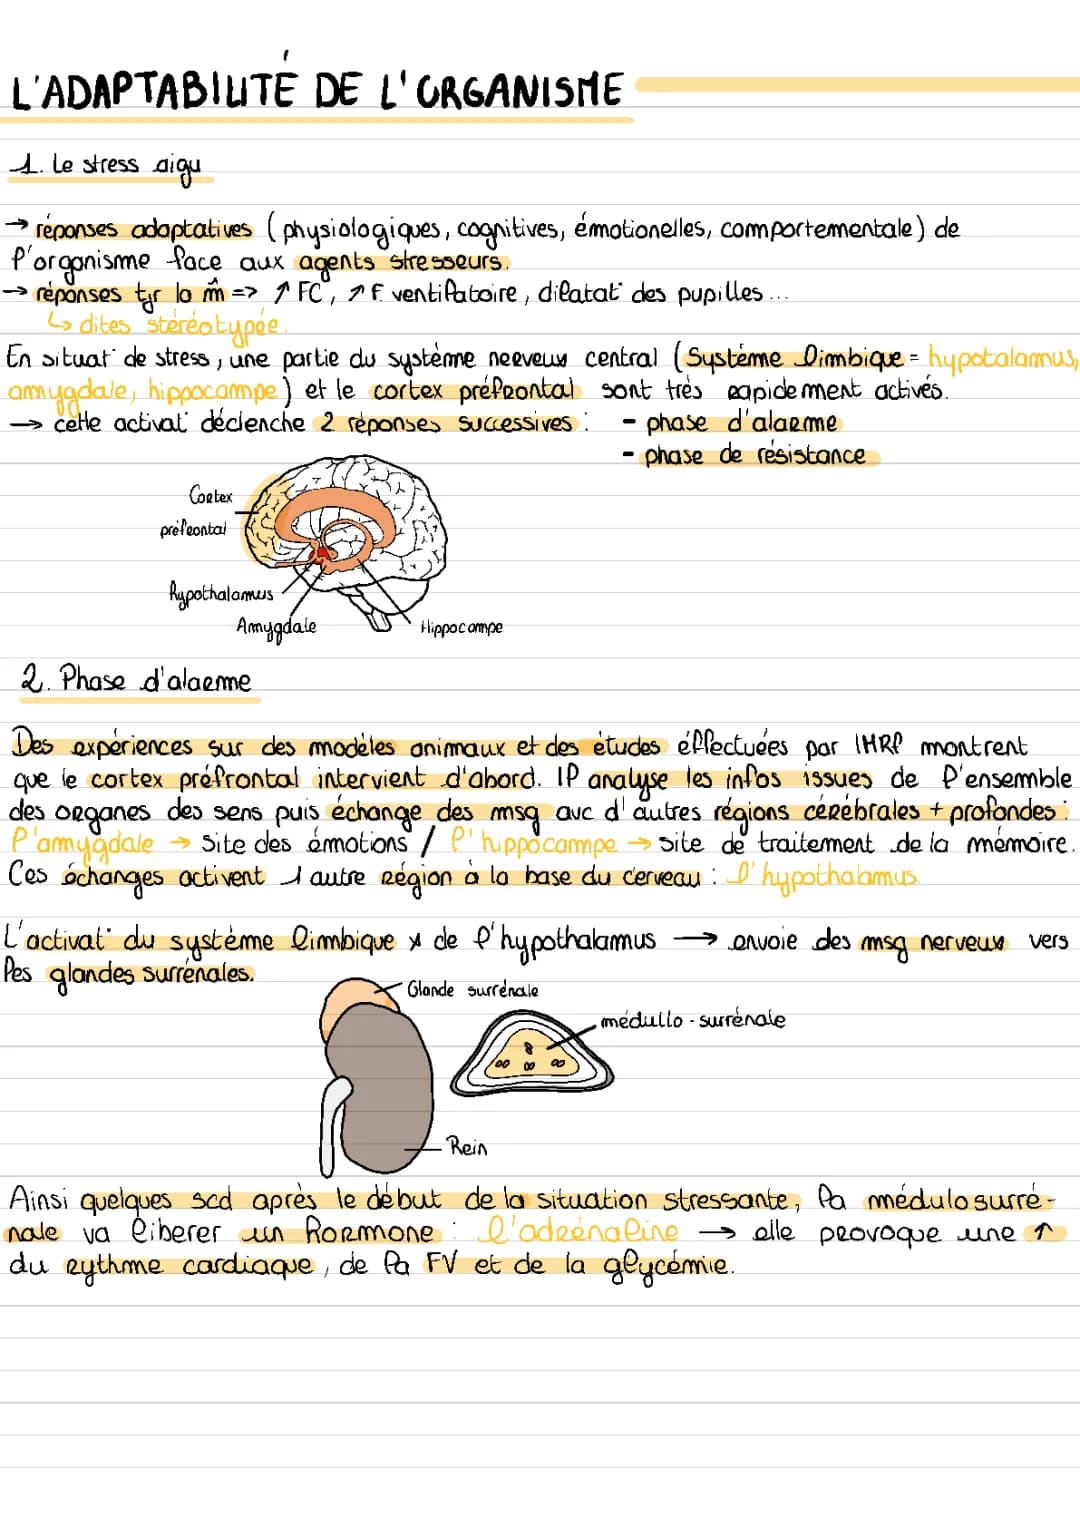 L'ADAPTABILITÉ DE L'ORGANISME
1. Le stress aigu
→ réponses adaptatives (physiologiques, cognitives, émotionelles, comportementale) de
l'organisme face aux agents stresseurs.
→ réponses tjr la m̂ => ↑ FC, ↗ F ventilatoire, dilatat° des pupilles...
↳ dites stéréotypée.
En situat° de stress, une partie du système nerveux central (Système limbique = hypotalamus,
amygdale, hippocampe) et le cortex préfrontal sont très rapidement activés.
→ cette activat° déclenche 2 réponses successives : - phase d'alarme
- phase de résistance
Cortex
préfrontal
hypothalamus
Amygdale
Hippocampe
2. Phase d'alarme
Des expériences sur des modèles animaux et des études éffectuées par IMRf montrent
que le cortex préfrontal intervient d'abord. Il analyse les infos issues de l'ensemble
des organes des sens puis échange des msg avc d'autres régions cérébrales + profondes :
l'amygdale → site des émotions / l'hippocampe → site de traitement de la mémoire.
Ces échanges activent 1 autre région à la base du cerveau : l'hypothalamus.
L'activat° du système limbique x de l'hypothalamus → envoie des msg nerveux vers
les glandes surrénales.
Glande surrénale
médullo-surrénale
Rein
Ainsi quelques scd après le début de la situation stressante, la médulosurré-
nale va liberer un hormone : l'adrénaline → elle provoque une ↑
du rythme cardiaque, de la FV et de la glycémie.